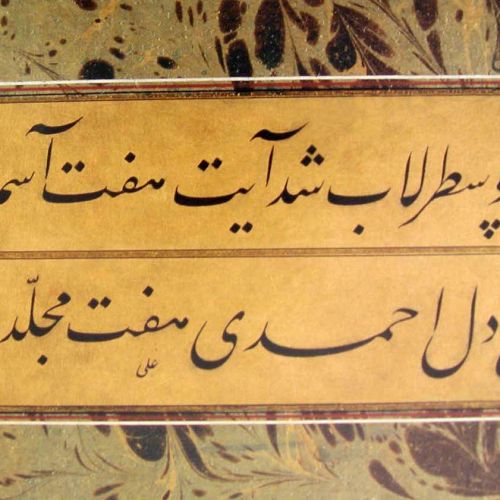 چو سطرلاب شد آیت هفت آسم
دل احمدی هفت مجلّد
علی